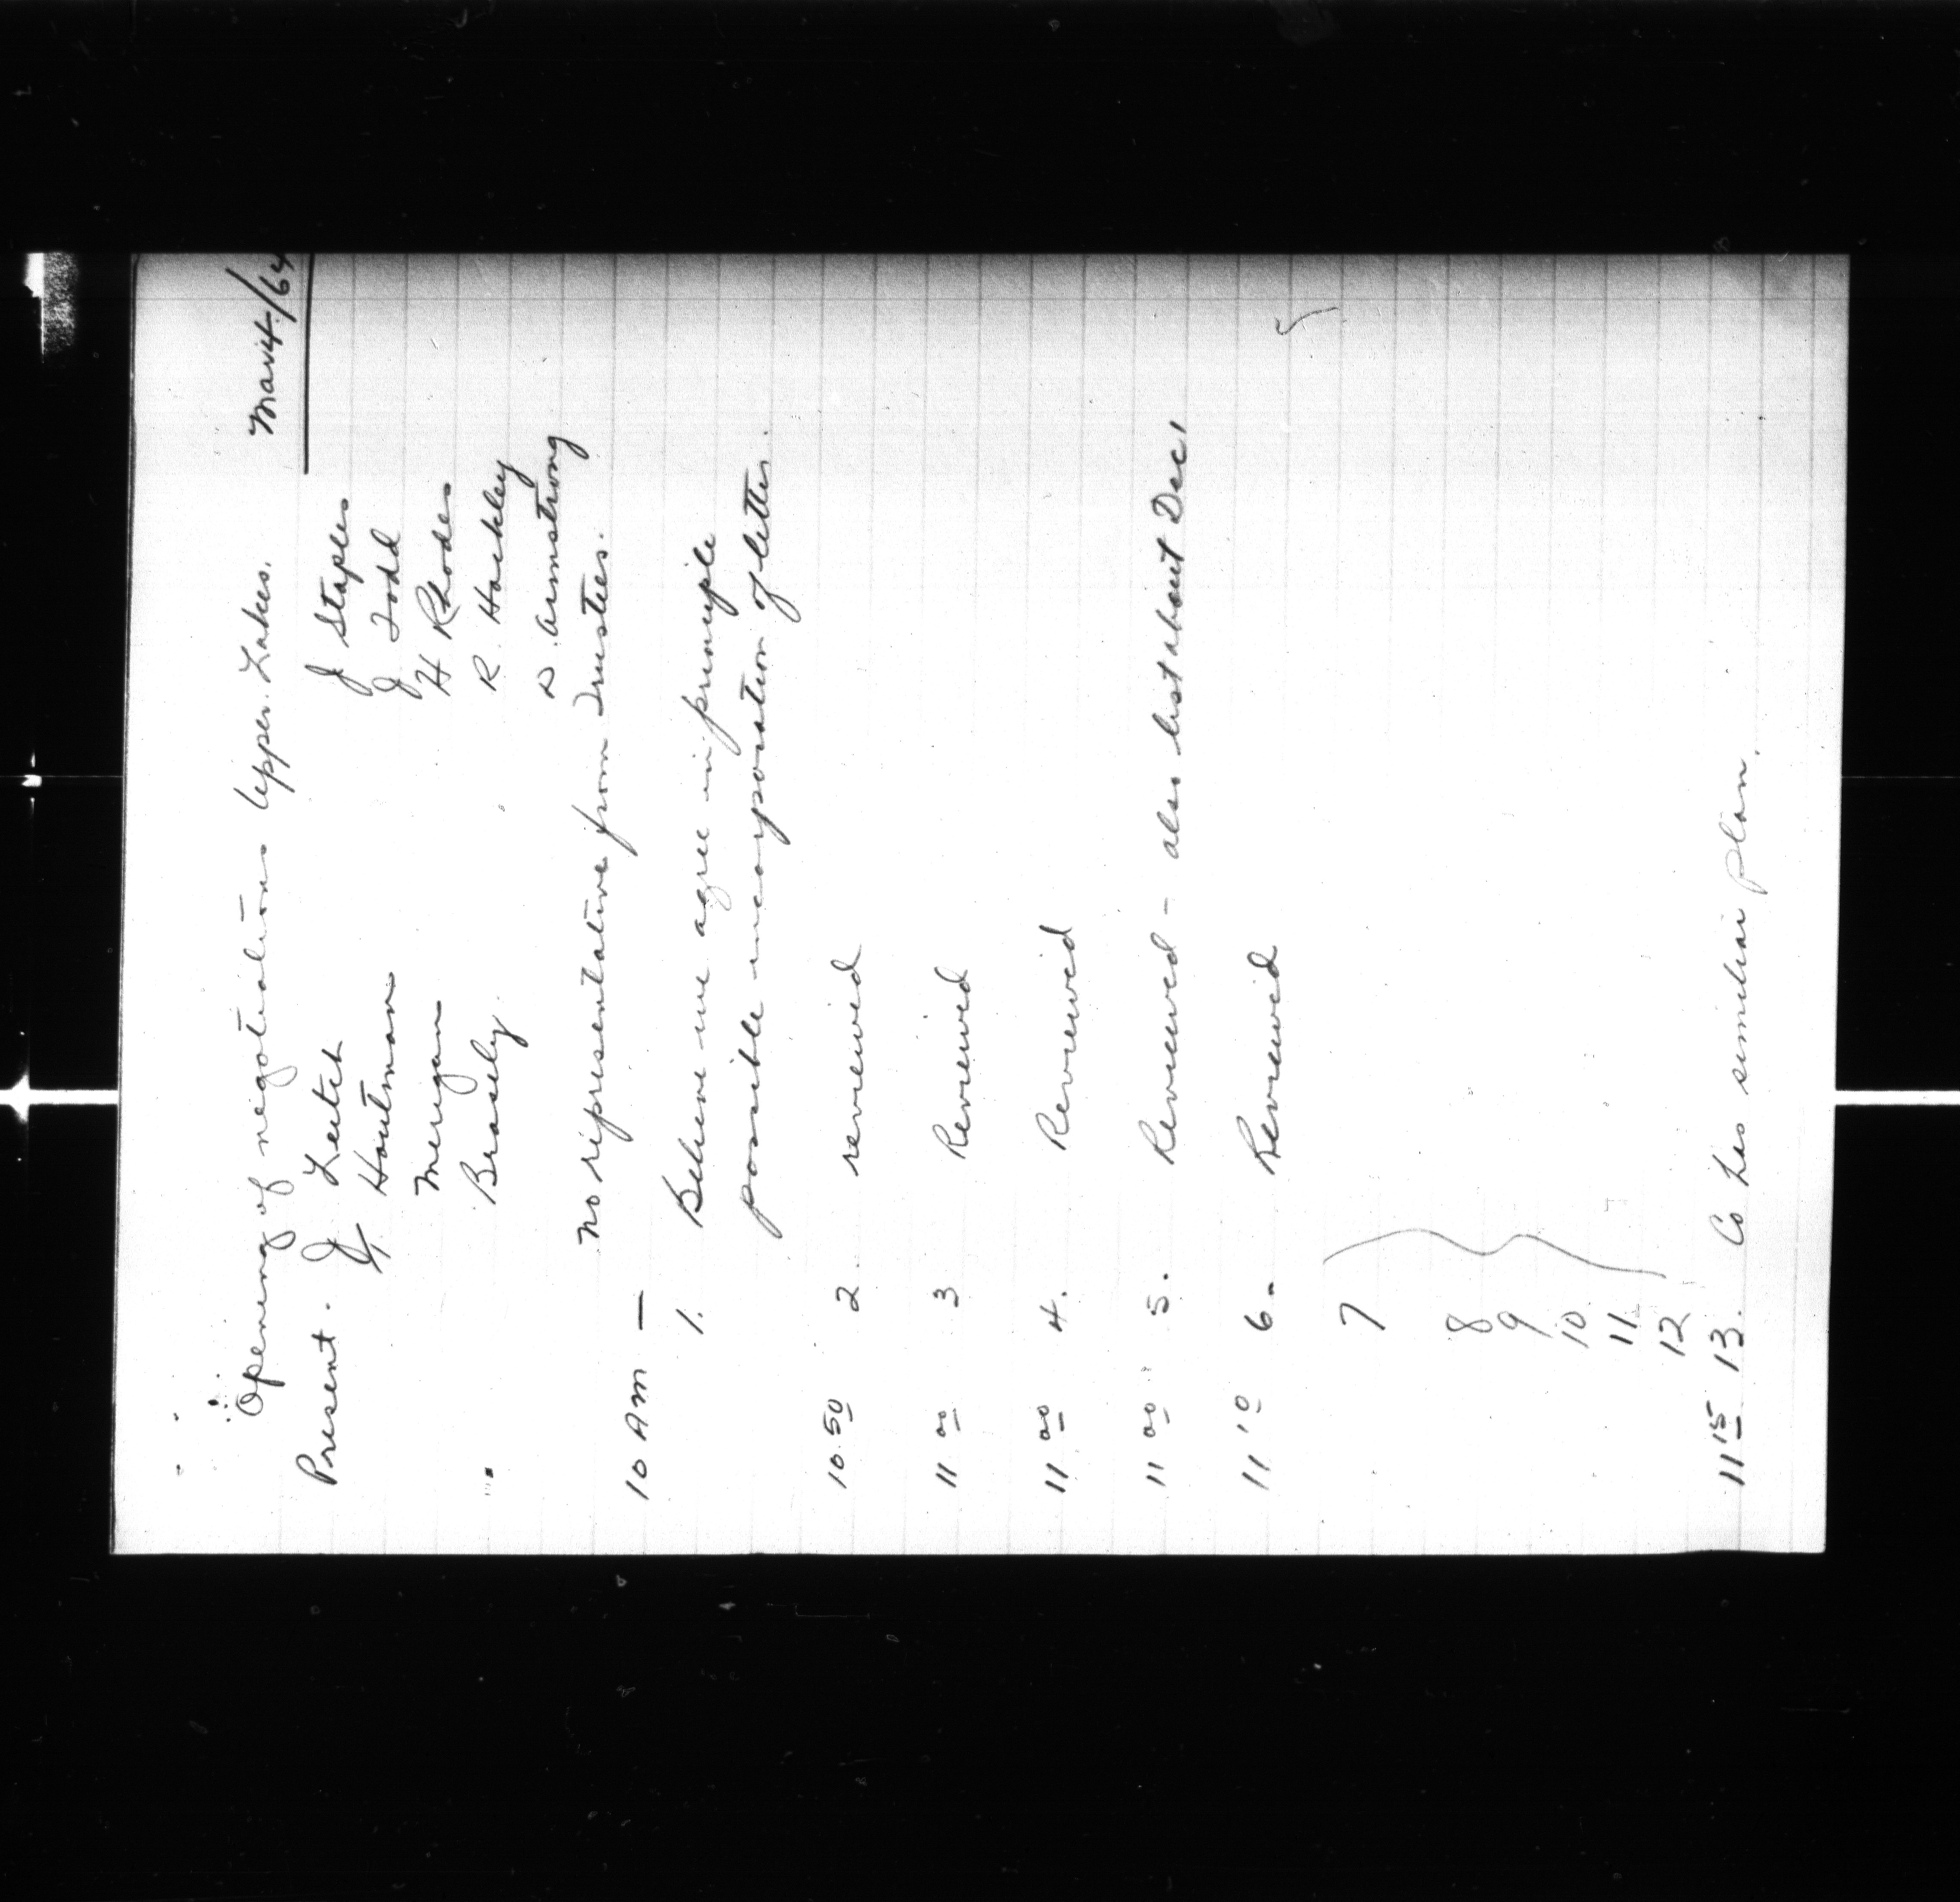 Mar 4/64
Opening of negotiations Upper Lakes.
Present. J Leitch J Staples
Houtman J Todd
Merigan H Rhodes
Brasely R. Hockley
D. Armstrong
No representative from Trustees.
10 AM —
1. Believe we agree in principle
possible incorporation of letter.
10.50 2. reviewed
11 00 3 Reviewed
11 00 4. Reviewed
11 00 5. Reviewed - also list about Dec 1
11 10 6. Reviewed
7
8
9
10
11
12
11 15 13. Co has similiar plan.